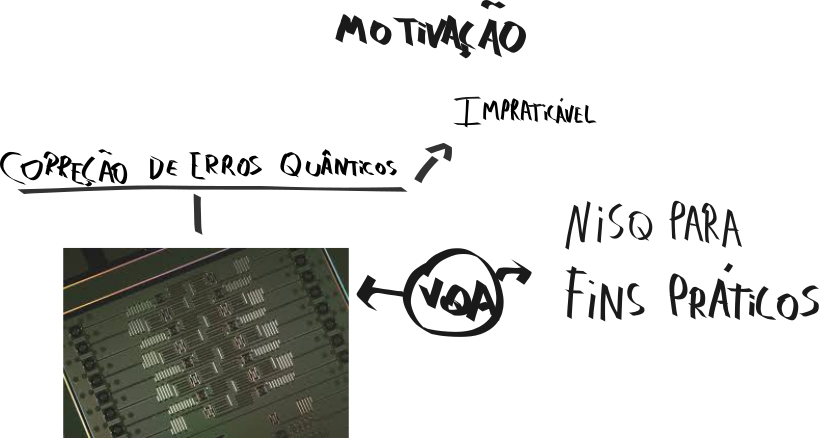 MOTIVAÇÃO
IMPRATICÁVEL
CORREÇÃO DE ERROS QUÂNTICOS
NISQ PARA
VQA
FINS PRÁTICOS